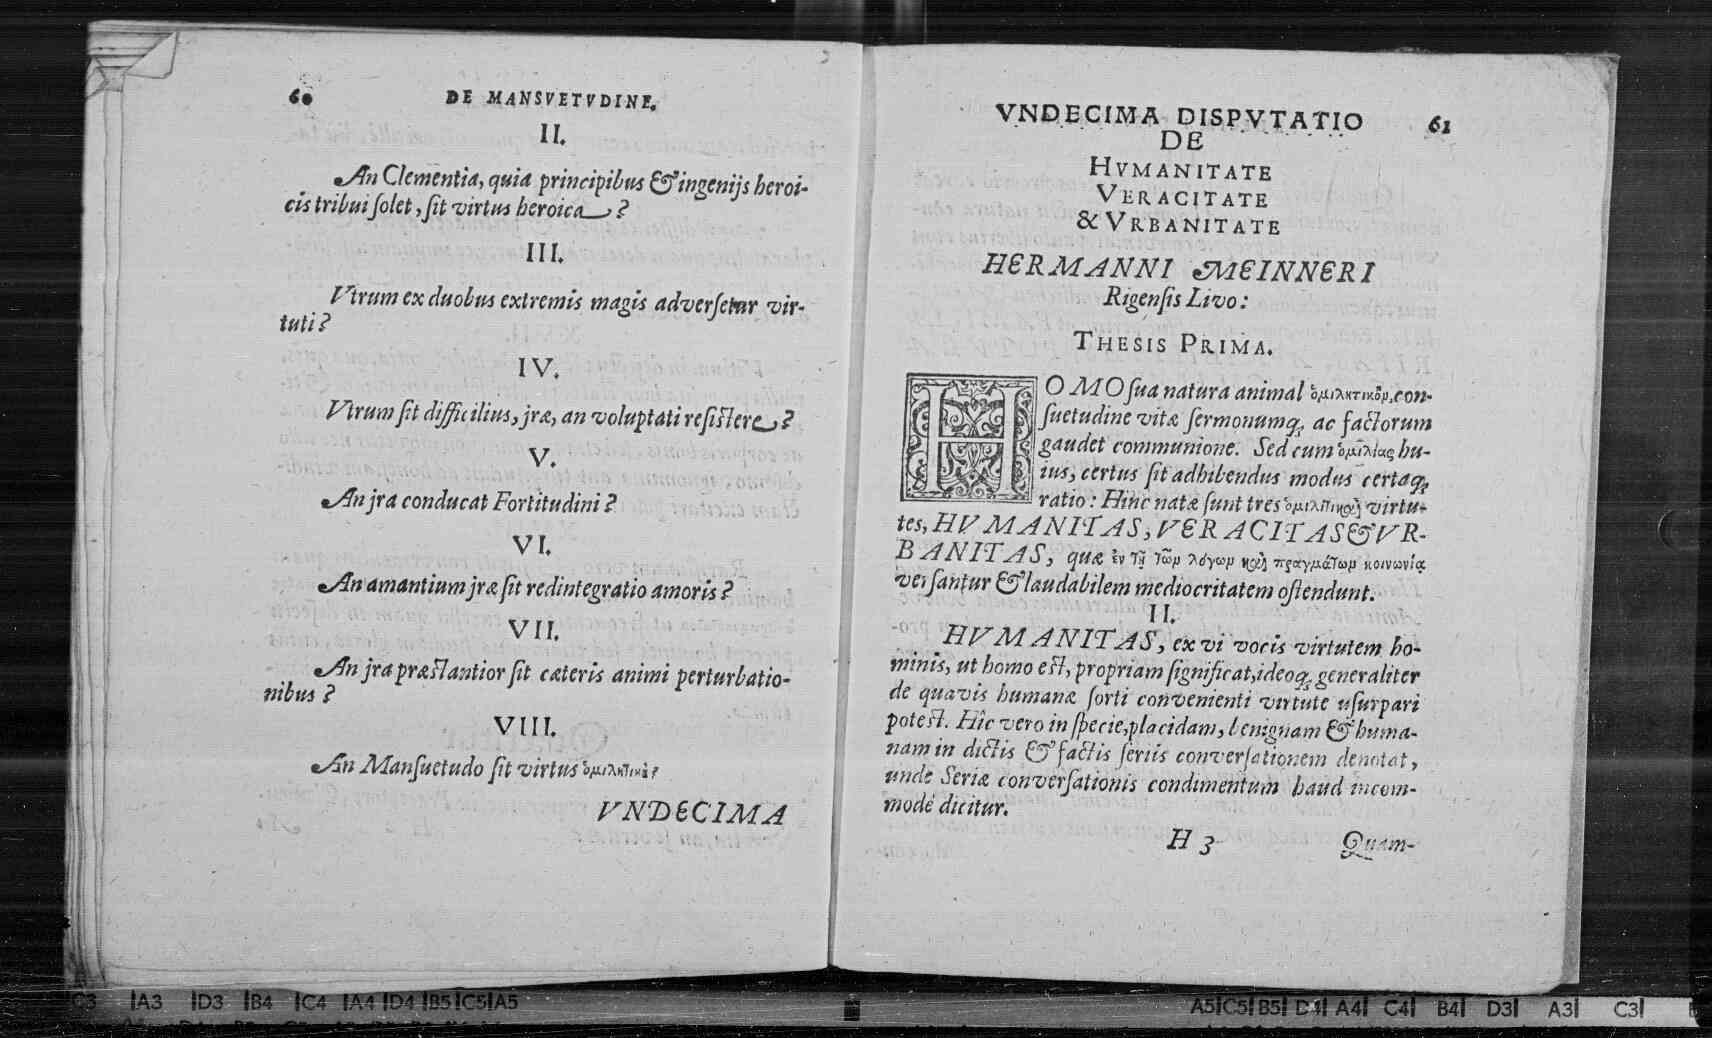 60 DE MANSVETVDINE.
II.
An Clementia, quia principibus & ingenijs heroi-
cis tribui ſolet, ſit virtus heroica?
III.
Vtrum ex duobus extremis magis adverſetur vir-
tuti?
IV.
Vtrum ſit difficilius, jræ, an voluptati reſiſtere?
V.
An jra conducat Fortitudini?
VI.
An amantium jræ ſit redintegratio amoris?
VII.
An jra præſtantior ſit cæteris animi perturbatio-
nibus?
VIII.
An Manſuetudo ſit virtus ὁμιλητικὴ?
VNDECIMA
VNDECIMA DISPVTATIO 61
DE
HVMANITATE
VERACITATE
& VRBANITATE
HERMANNI MEINNERI
Rigenſis Livo:
THESIS PRIMA.
HOMO ſua natura animal ὁμιλητικὸν, con-
ſuetudine vitæ ſermonumq; ac factorum
gaudet communione. Sed cum ὁμιλίας hu-
ius, certus ſit adhibendus modus certaq;
ratio: Hinc natæ ſunt tres ὁμιλητικαὶ virtu-
tes, HVMANITAS, VERACITAS & VR-
BANITAS, quæ ἐν τῇ τῶν λόγων καὶ πραγμάτων κοινωνίᾳ
verſantur & laudabilem mediocritatem oſtendunt.
II.
HVMANITAS, ex vi vocis virtutem ho-
minis, ut homo eſt, propriam ſignificat, ideoq; generaliter
de quavis humanæ ſorti convenienti virtute uſurpari
poteſt. Hîc vero in ſpecie, placidam, benignam & huma-
nam in dictis & factis ſeriis converſationem denotat,
unde Seriæ converſationis condimentum haud incom-
modé dicitur.
H 3 Quam-
C3 A3 D3 B4 C4 A4 D4 B5 C5 A5
A5 C5 B5 D4 A4 C4 B4 D3 A3 C3